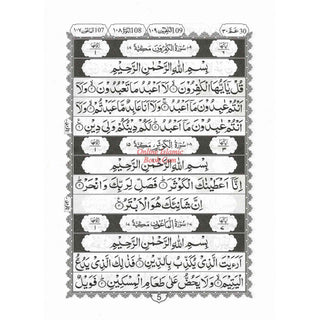 الماعون ١٠٧ الكوثر ١٠٨ الكفرون ١٠٩ عم ٣٠
سُوْرَةُ الْكٰفِرُوْنَ مَكِّيَّةٌ
بِسْمِ اللّٰهِ الرَّحْمٰنِ الرَّحِيْمِ
قُلْ يٰٓاَيُّهَا الْكٰفِرُوْنَ ۝ لَآ اَعْبُدُ مَا تَعْبُدُوْنَ ۝ وَلَآ
اَنْتُمْ عٰبِدُوْنَ مَآ اَعْبُدُ ۝ وَلَآ اَنَا عَابِدٌ مَّا عَبَدْتُّمْ ۝ وَلَآ
اَنْتُمْ عٰبِدُوْنَ مَآ اَعْبُدُ ۝ لَكُمْ دِيْنُكُمْ وَلِيَ دِيْنِ ۝
سُوْرَةُ الْكَوْثَرِ مَكِّيَّةٌ
Online Islamic
Book
بِسْمِ اللّٰهِ الرَّحْمٰنِ الرَّحِيْمِ
اِنَّآ اَعْطَيْنٰكَ الْكَوْثَرَ ۝ فَصَلِّ لِرَبِّكَ وَانْحَرْ ۝
اِنَّ شَانِئَكَ هُوَ الْاَبْتَرُ ۝
سُوْرَةُ الْمَاعُوْنِ مَكِّيَّةٌ
بِسْمِ اللّٰهِ الرَّحْمٰنِ الرَّحِيْمِ
اَرَءَيْتَ الَّذِيْ يُكَذِّبُ بِالدِّيْنِ ۝ فَذٰلِكَ الَّذِيْ يَدُعُّ
الْيَتِيْمَ ۝ وَلَا يَحُضُّ عَلٰى طَعَامِ الْمِسْكِيْنِ ۝ فَوَيْلٌ
5